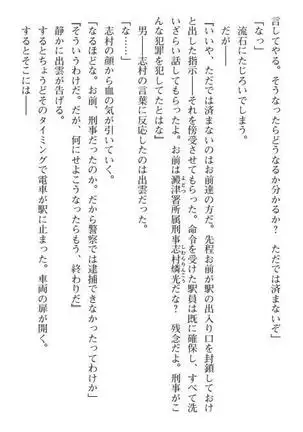 言してやる。そうなったらどうなるか分かるか？　ただでは済まないぞ」
「なっ」
流石にたじろいでしまう。
だが――
『いいや、ただでは済まないのはお前達の方だ。先程お前が駅の出入り口を封鎖しておけ
と出した指示――それを傍受させてもらった。命令を受けた駅員は既に確保し、すべて洗
いざらい話してもらったよ。お前は澱津署所属刑事志村燐光だな？　残念だよ。刑事がこ
んな犯罪を犯してたとはな』
男――志村の言葉に反応したのは出雲だった。
「な……」
志村の顔から血の気が引いていく。
『なるほどな。お前、刑事だったのか。だから警察では逮捕できなかったってわけか』
『そういうわけだ。だが、何にせよこうなったらもう、終わりだ』
静かに出雲が告げる。
するとちょうどそのタイミングで電車が駅に止まった。車両の扉が開く。
するとそこには――